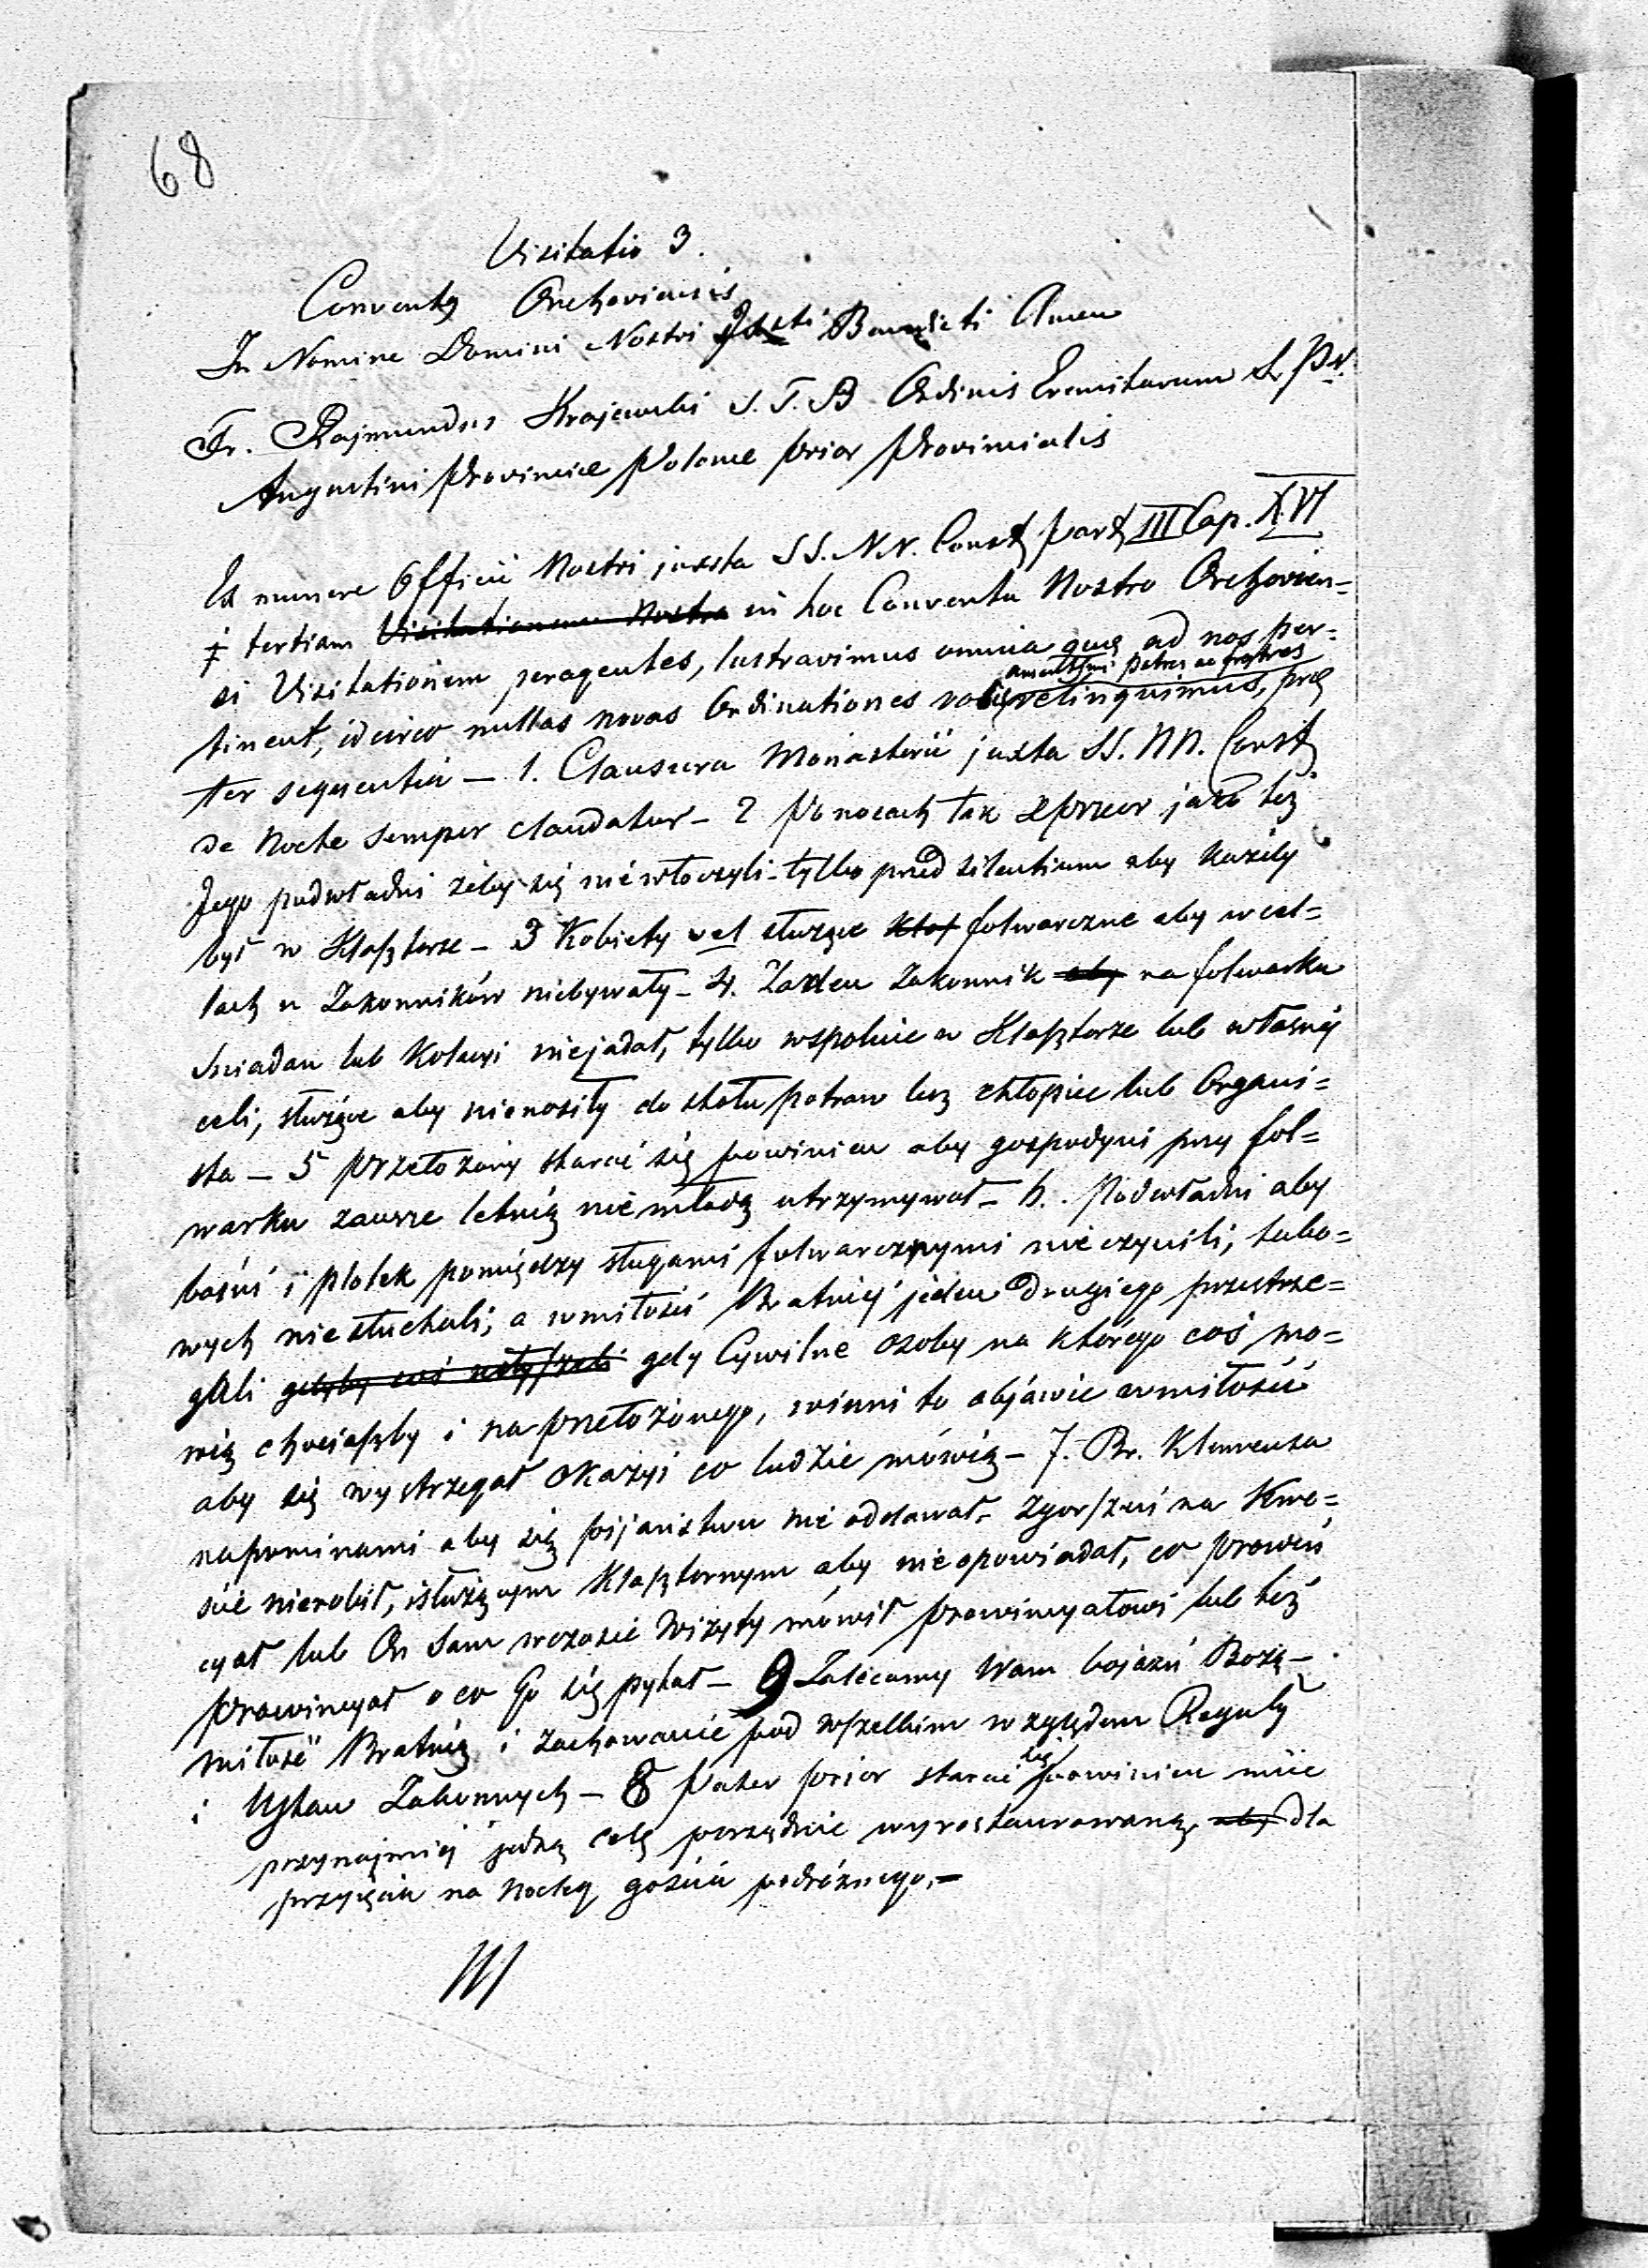 68
Visitatio 3.
Conventq Orchoviensis
In Nomine Domini Nostri Benedicti Amen
Fr. Rajmundus Krajewski S. T. B Ordinis Eremitarum S. P. N.
Augustini Provinciæ Polonæ Prior Provincialis
Ex munere Officii Nostri juxta SS. NN. Const Part III Cap. XVI
tertiam Visitationem Nostra in hoc Conventu Nostro Orchovien=
si Visitationem peragentes, lustravimus omnia quę ad nos per=
amantssmi Patres ac fratres
tinent, idcirco nullas novas Ordinationes vobis relinquimus, prę
ter sequentia — 1. Clausura Monasterii juxta SS. NN. Const
de Nocte semper claudatur – 2 Po nocach tak xprzeor jako też
Jego podwładni żeby się niewłoczyli – tylko przed silentium aby każdy
był w Klasztorze – 3 Kobiety vel służące folwarczne aby w cel=
lach u Zakonników niebywały – 4. Żaden Zakonnik aby na folwarku
sniadan lub Kolacyi niejadał, tylko wspolnie w Klasztorze lub własnéj
celi, służące aby nienosiły do stołu potraw lecz chłopiec lub Organi=
sta – 5 Przełożony starać się powinien aby gospodyni przy fol=
warku zawsze letnią nie młodą utrzymywał – 6. Podwładni aby
baśni i plotek pomiędzy sługami folwarcznymi nie czynili, tako=
wych niesłuchali; a w miłości Bratniéj jeden Drugiego przestrze=
gali gdyby coś usłyszeli gdy Cywilne osoby na którego coś mo=
wią chociażby i na przełożonego, winni to objawić w miłości
aby się wystrzegał okazyi co ludzie mówią – 7. Br. Klemensa
napominami aby się pijaństwu nie oddawał – Zgorszeń na Kwe=
ście nierobił, służącym Klasztornym aby nieopowiadał, co prowin
cyał lub On Sam w czasie Wizyty mówił Prowincyałowi lub też
Prowincyał o co Go się pytał – 9 Zalécamy Wam bojaźń Bożą –
miłość Bratnią i zachowanie pod wszelkim względem Reguły
i Ustaw Zakonnych – 8 Pater Prior starać się powinien mieć
przynajmniéj jedną celę porządnie wyrestaurowaną, aby dla
przyjęcia na nocleg gościa podróżnego. –